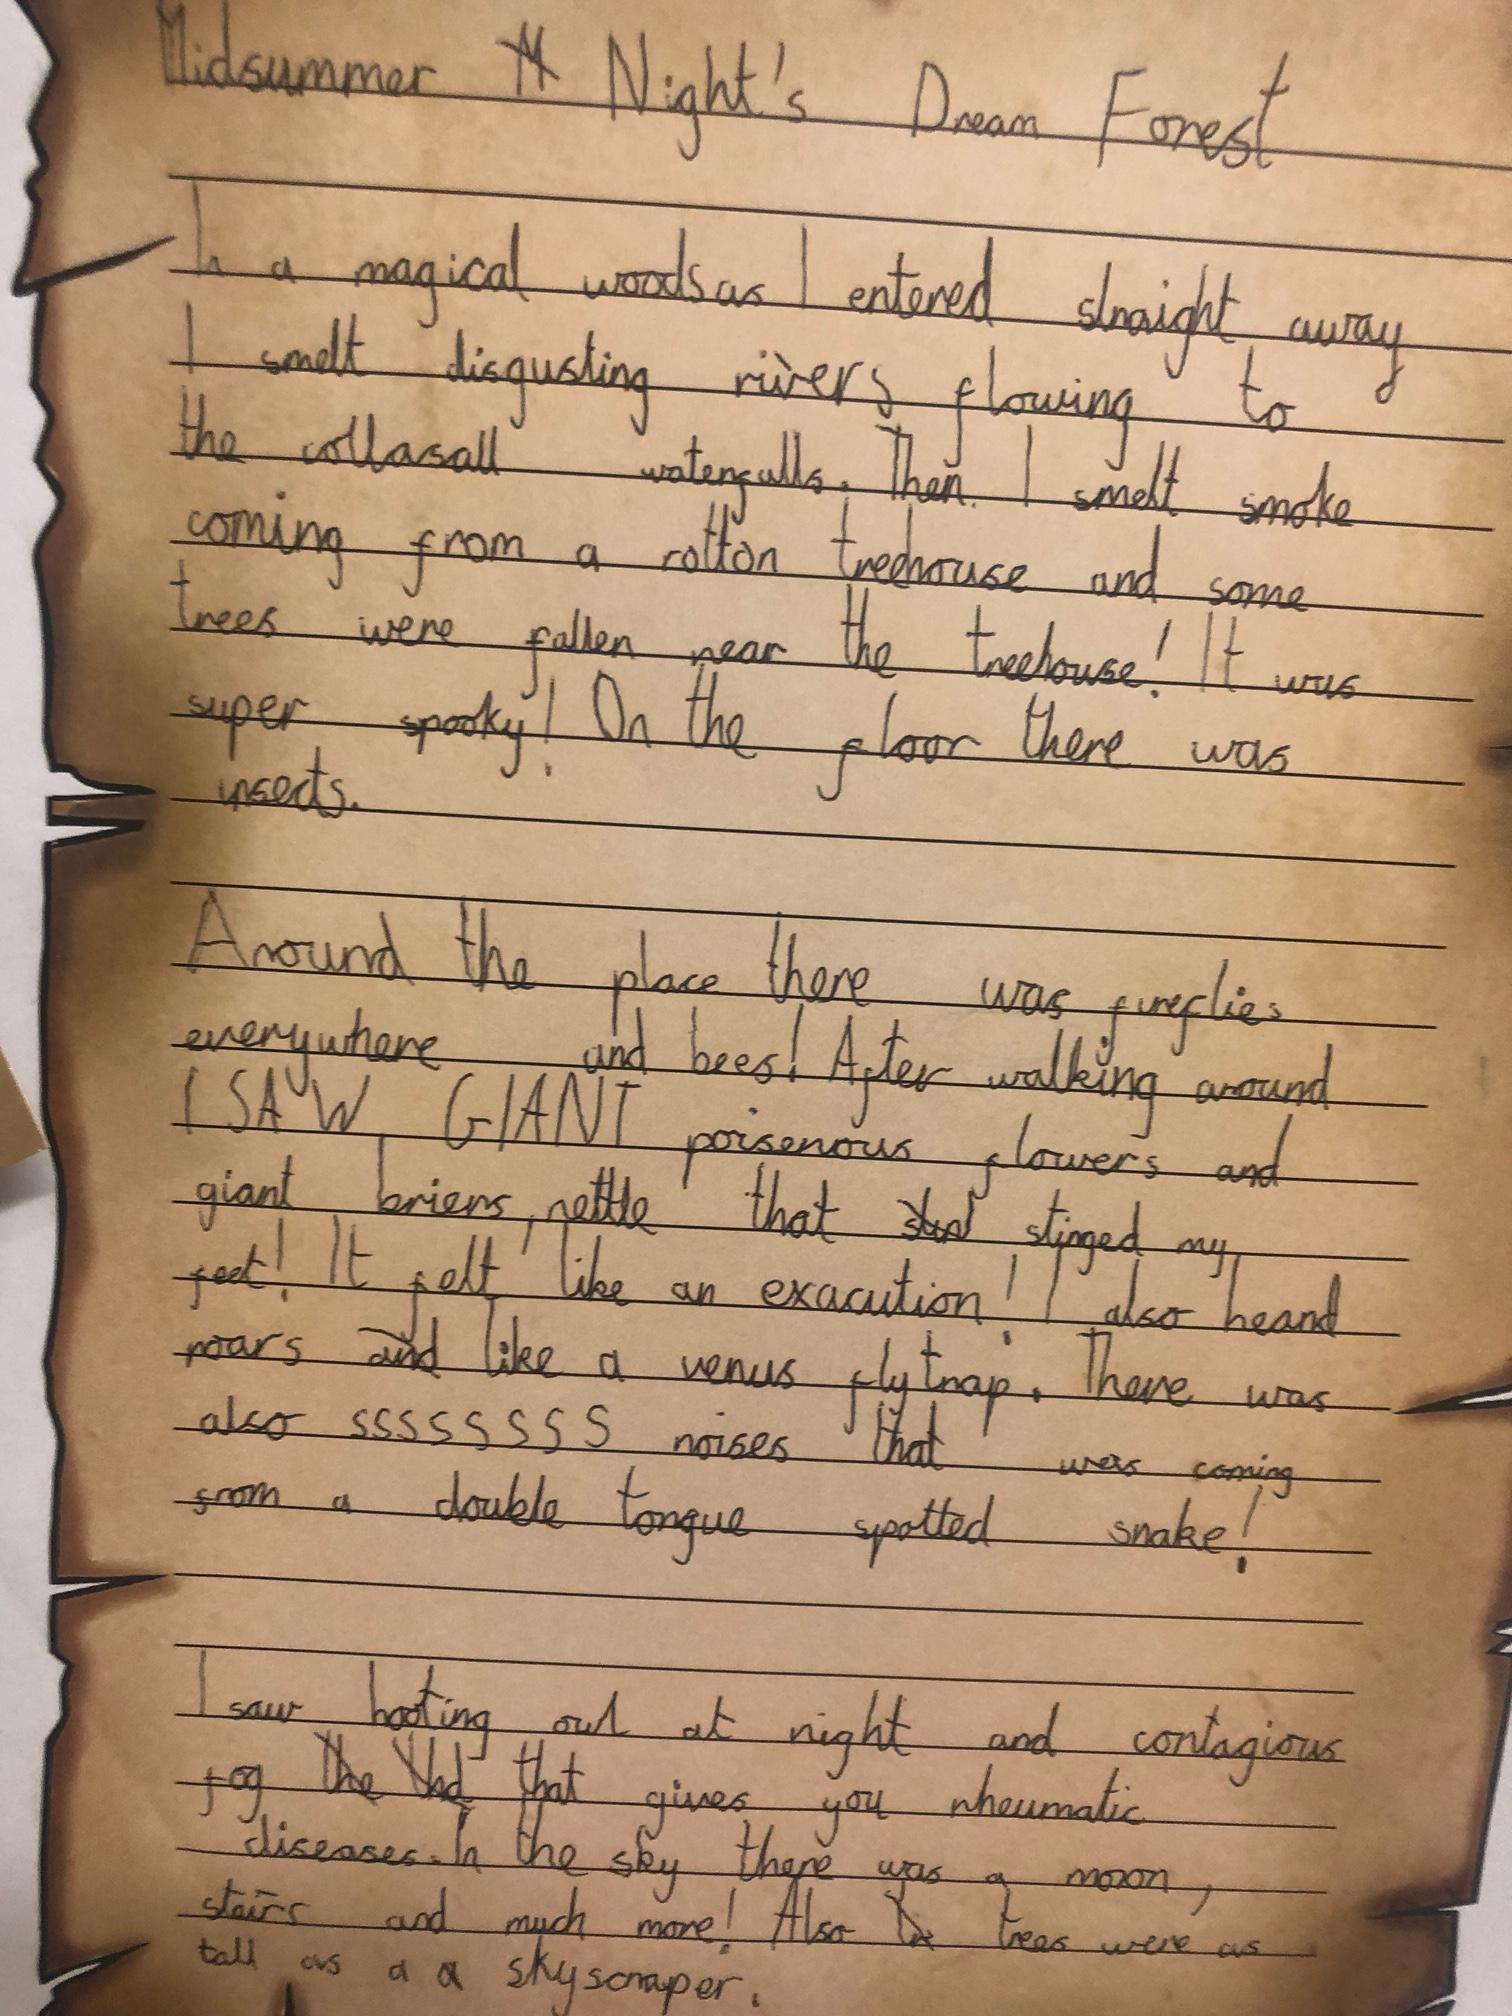 Midsummer Night's Dream Forest
In a magical woods as I entered straight away
I smelt disgusting rivers flowing to
the collasall waterfalls. Then I smelt smoke
coming from a rotton treehouse and some
trees were fallen near the treehouse! It was
super spooky! On the floor there was
insects.
Around the place there was fireflies
everywhere and bees! After walking around
I SAW GIANT poisenous flowers and
giant briers, nettle that stinged my
feet! It felt like an exacution! I also heard
roars and like a venus flytrap. There was
also ssssssss noises that was coming
from a double tongue spotted snake!
I saw hooting owl at night and contagious
fog that gives you rheumatic
diseases. In the sky there was a moon,
stairs and much more! Also trees were as
tall as a a skyscraper.